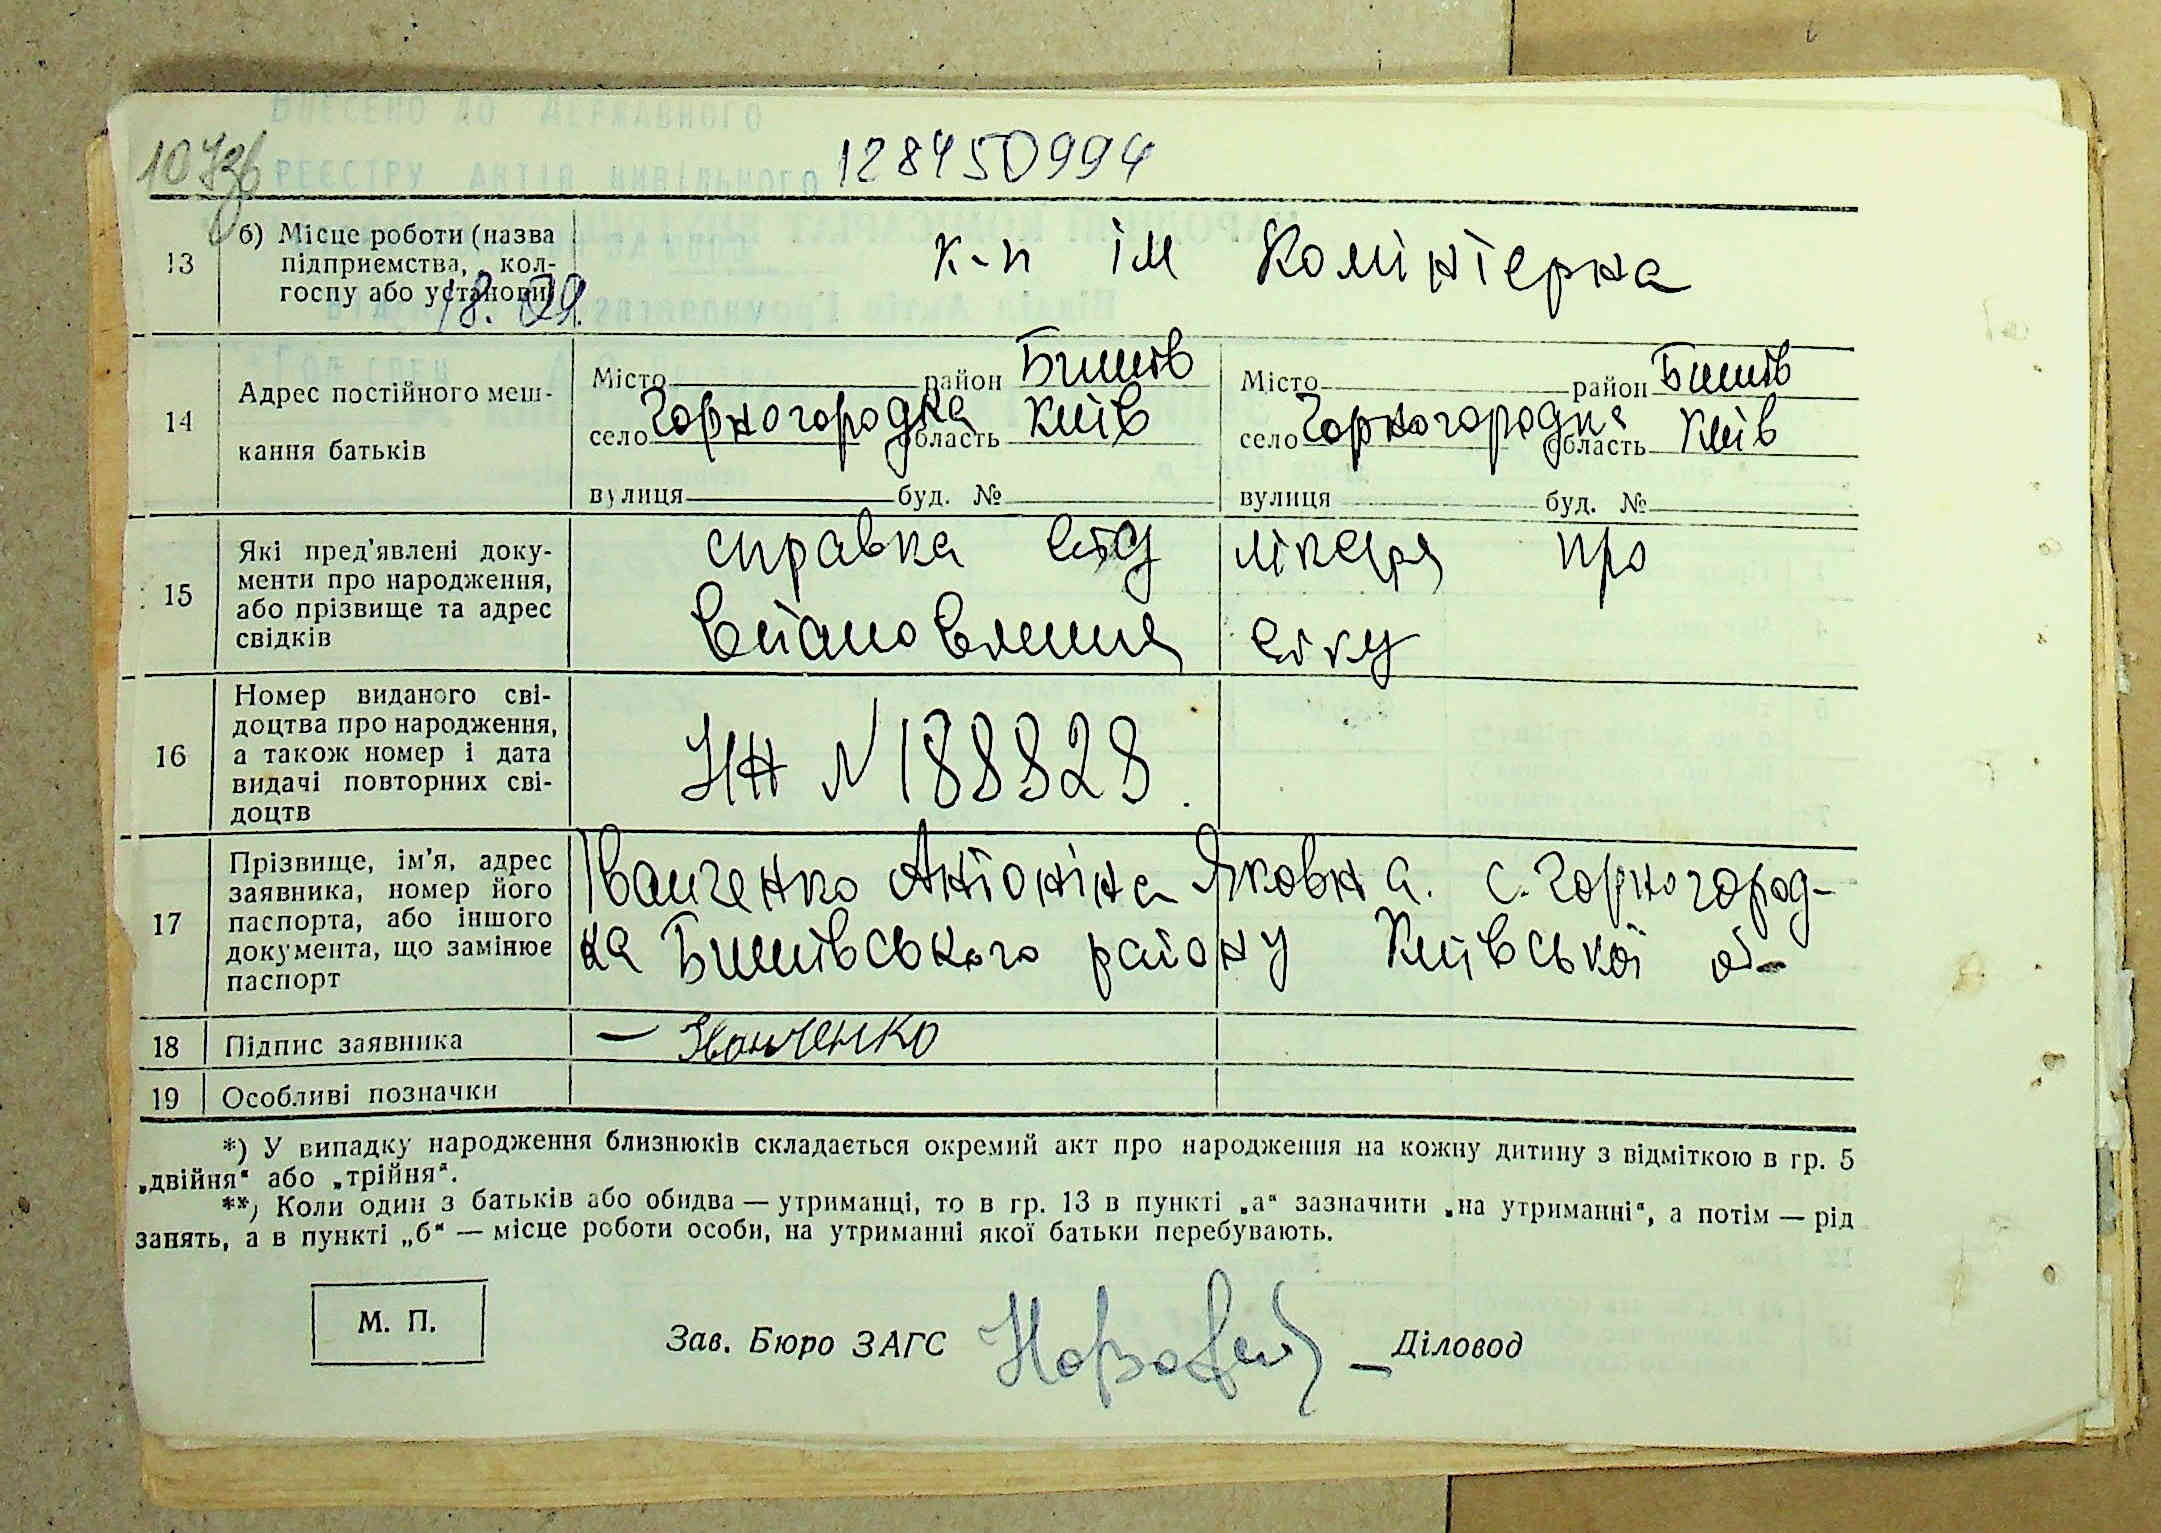 ВНЕСЕНО ДО ДЕРЖАВНОГО
РЕЄСТРУ АКТІВ ЦИВІЛЬНОГО
107зв
128450994
13 б) Місце роботи (назва підприємства, кол-
госпу або установи)
к-п ім Комінтерна
18. 09.
14 Адрес постійного меш-
кання батьків
Місто район Бишів
село Чорногородка область Київ
вулиця буд. №
Місто район Бишів
село Чорногородка область Київ
вулиця буд. №
15 Які пред'явлені доку-
менти про народження,
або прізвище та адрес
свідків
справка від лікаря про
встановлення віку
16 Номер виданого сві-
доцтва про народження,
а також номер і дата
видачі повторних сві-
доцтв
НН № 188828.
17 Прізвище, ім'я, адрес
заявника, номер його
паспорта, або іншого
документа, що замінює
паспорт
Іванченко Антоніна Яковна. с. Чорногород-
ка Бишівського району Київської об-
18 Підпис заявника
— Іванченко
19 Особливі позначки
*) У випадку народження близнюків складається окремий акт про народження на кожну дитину з відміткою в гр. 5
„двійня“ або „трійня“.
**) Коли один з батьків або обидва — утриманці, то в гр. 13 в пункті „а“ зазначити „на утриманні“, а потім — рід
занять, а в пункті „б“ — місце роботи особи, на утриманні якої батьки перебувають.
М. П.
Зав. Бюро ЗАГС
Діловод